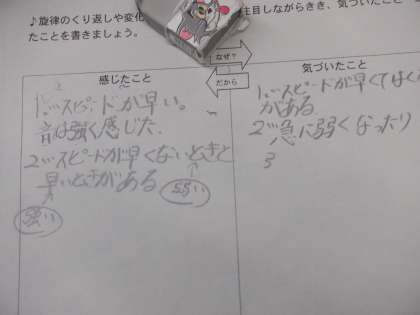 ♪旋律のくり返しや変化
注目しながらきき、気づいたこと
たことを書きましょう。
なぜ？
だから
感じたこと
1.‥スピードが早い。
音は強く感じた。
2‥スピードが早くないときと
早いときがある
弱い
強い
気づいたこと
1.‥スピードが早くてはく
がある
2‥急に弱くなったり
3